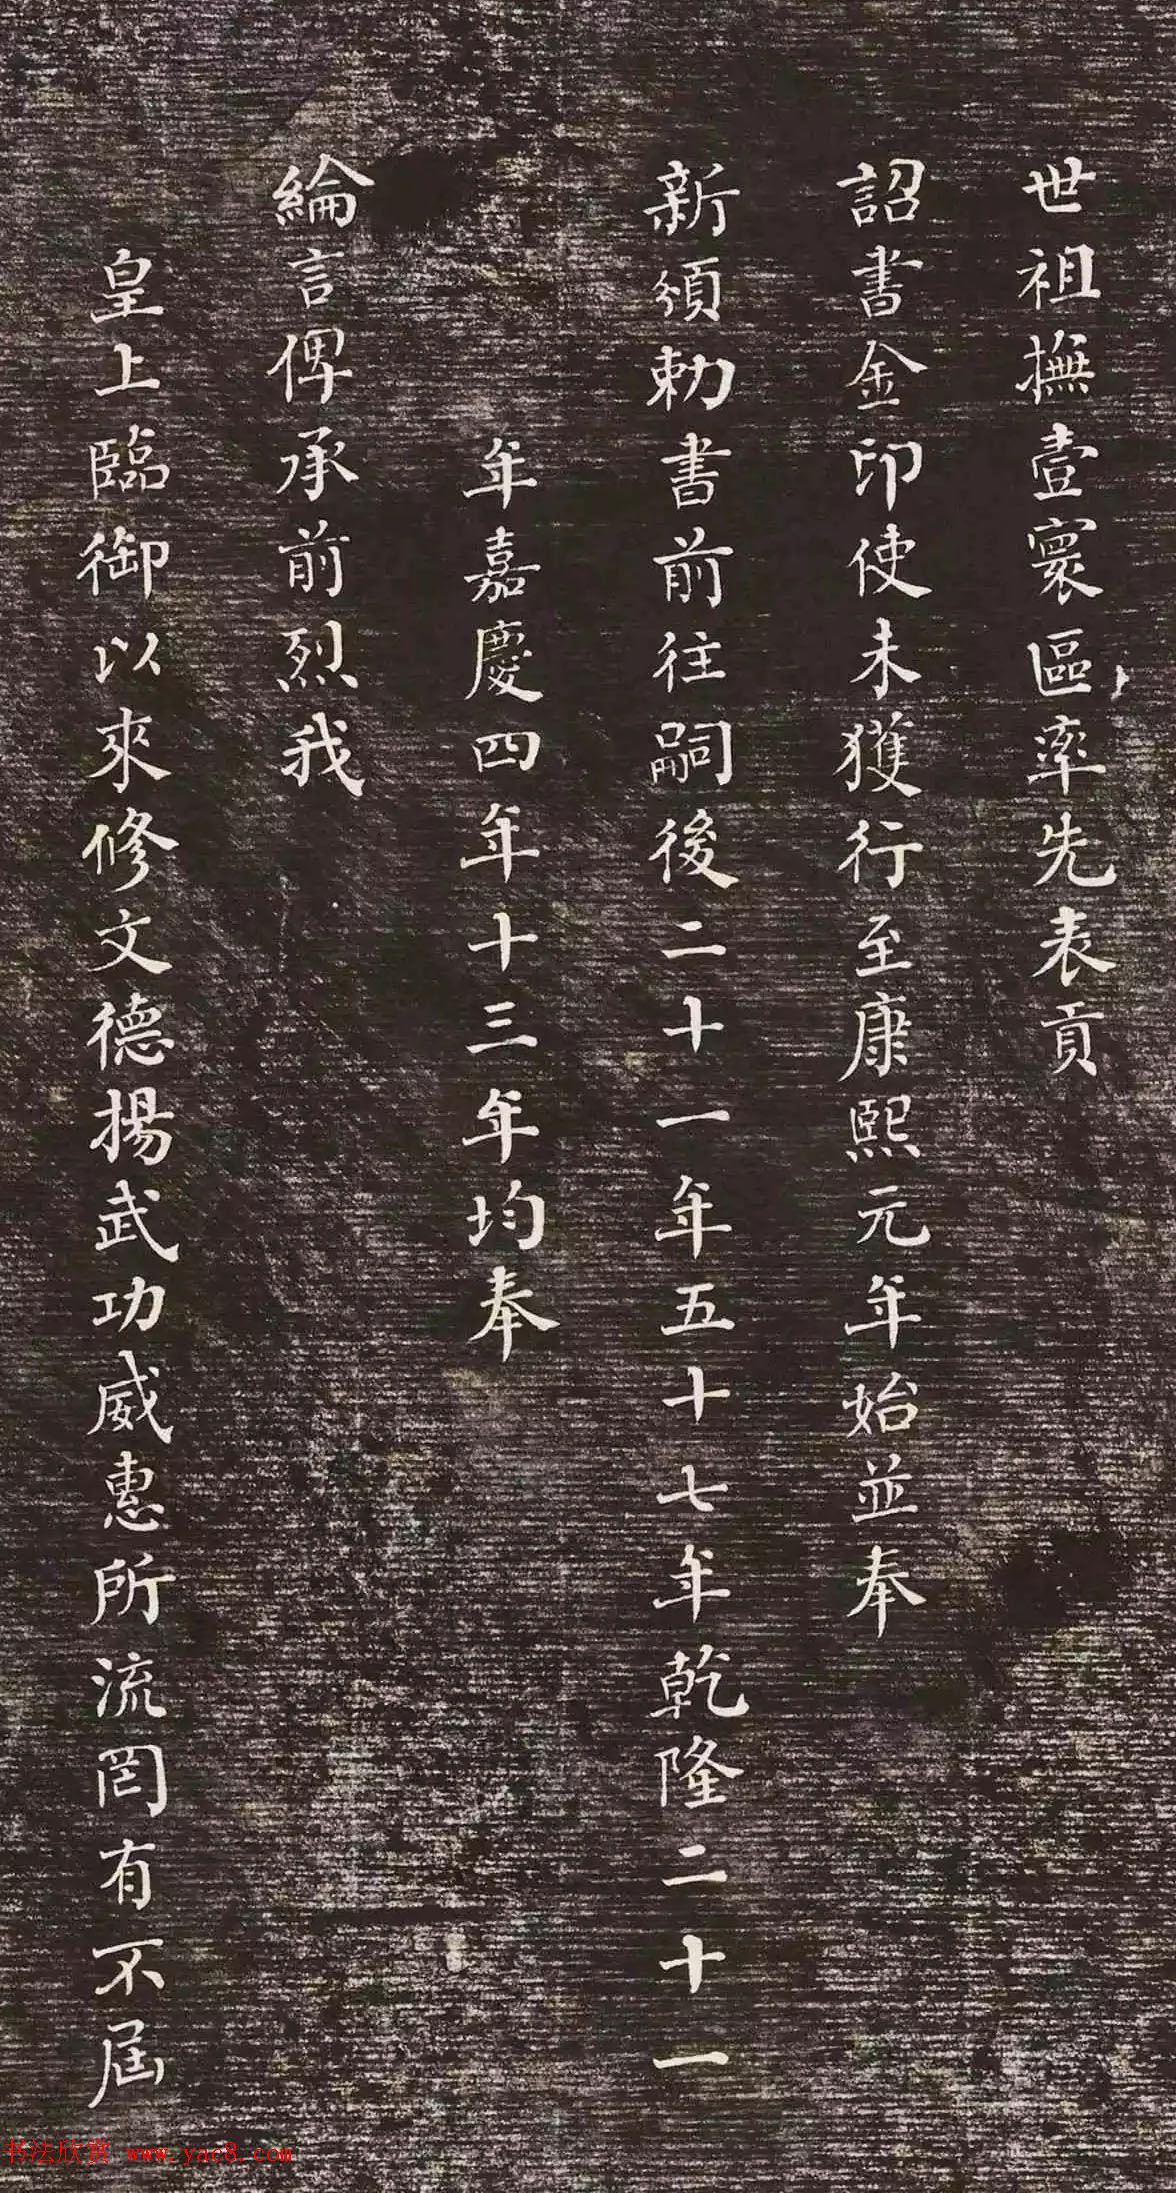 世祖撫壹寰區率先表貢
詔書金印使未獲行至康熙元年始並奉
新頒勅書前往嗣後二十一年五十七年乾隆二十一
年嘉慶四年十三年均奉
綸言俾承前烈我
皇上臨御以來修文德揚武功威惠所流罔有不屆
书法欣赏 www.yac8.com